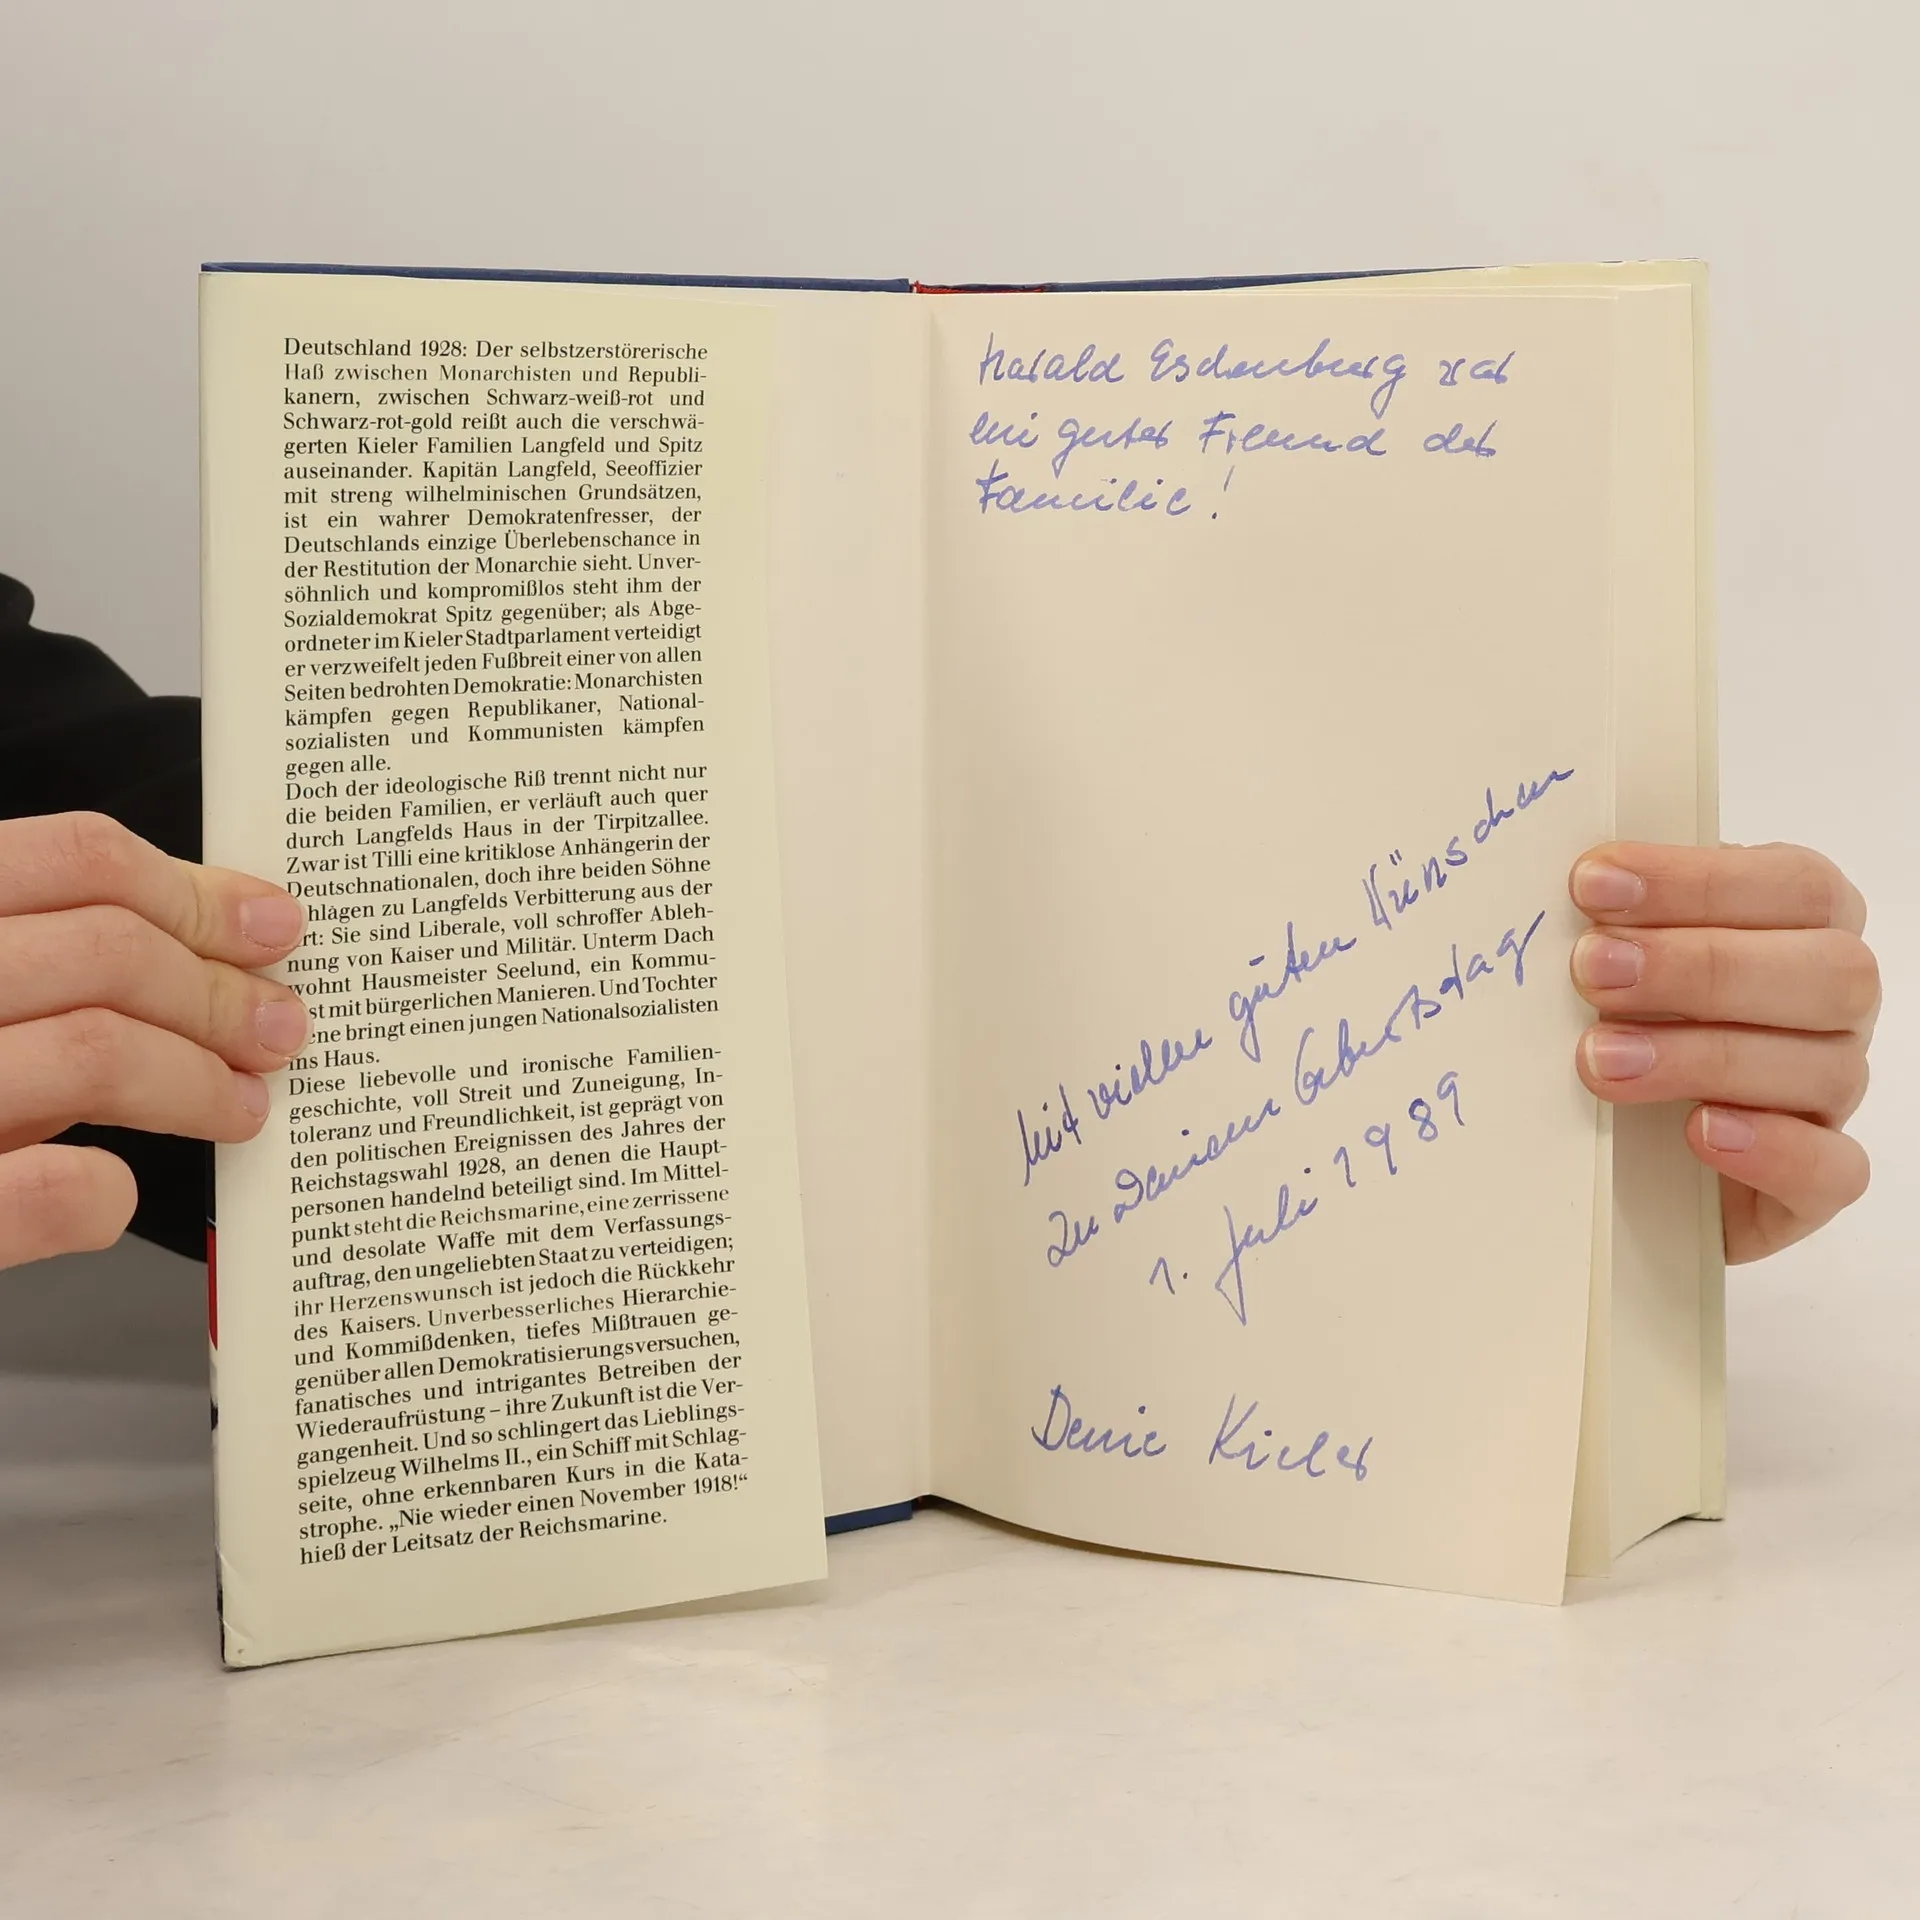 Deutschland 1928: Der selbstzerstörerische
Haß zwischen Monarchisten und Republi-
kanern, zwischen Schwarz-weiß-rot und
Schwarz-rot-gold reißt auch die verschwä-
gerten Kieler Familien Langfeld und Spitz
auseinander. Kapitän Langfeld, Seeoffizier
mit streng wilhelminischen Grundsätzen,
ist ein wahrer Demokratenfresser, der
Deutschlands einzige Überlebenschance in
der Restitution der Monarchie sieht. Unver-
söhnlich und kompromißlos steht ihm der
Sozialdemokrat Spitz gegenüber; als Abge-
ordneter im Kieler Stadtparlament verteidigt
er verzweifelt jeden Fußbreit einer von allen
Seiten bedrohten Demokratie: Monarchisten
kämpfen gegen Republikaner, National-
sozialisten und Kommunisten kämpfen
gegen alle.
Doch der ideologische Riß trennt nicht nur
die beiden Familien, er verläuft auch quer
durch Langfelds Haus in der Tirpitzallee.
Zwar ist Tilli eine kritiklose Anhängerin der
Deutschnationalen, doch ihre beiden Söhne
hlagen zu Langfelds Verbitterung aus der
rt: Sie sind Liberale, voll schroffer Ableh-
nung von Kaiser und Militär. Unterm Dach
wohnt Hausmeister Seelund, ein Kommu-
st mit bürgerlichen Manieren. Und Tochter
ene bringt einen jungen Nationalsozialisten
ins Haus.
Diese liebevolle und ironische Familien-
geschichte, voll Streit und Zuneigung, In-
toleranz und Freundlichkeit, ist geprägt von
den politischen Ereignissen des Jahres der
Reichstagswahl 1928, an denen die Haupt-
personen handelnd beteiligt sind. Im Mittel-
punkt steht die Reichsmarine, eine zerrissene
und desolate Waffe mit dem Verfassungs-
auftrag, den ungeliebten Staat zu verteidigen;
ihr Herzenswunsch ist jedoch die Rückkehr
des Kaisers. Unverbesserliches Hierarchie-
und Kommißdenken, tiefes Mißtrauen ge-
genüber allen Demokratisierungsversuchen,
fanatisches und intrigantes Betreiben der
Wiederaufrüstung – ihre Zukunft ist die Ver-
gangenheit. Und so schlingert das Lieblings-
spielzeug Wilhelms II., ein Schiff mit Schlag-
seite, ohne erkennbaren Kurs in die Kata-
strophe. „Nie wieder einen November 1918!“
hieß der Leitsatz der Reichsmarine.
Harald Eschenburg war
ein guter Freund der
Familie!
Mit vielen guten Wünschen
zu Deinem Geburtstag
1. Juli 1989
Deine Kieler